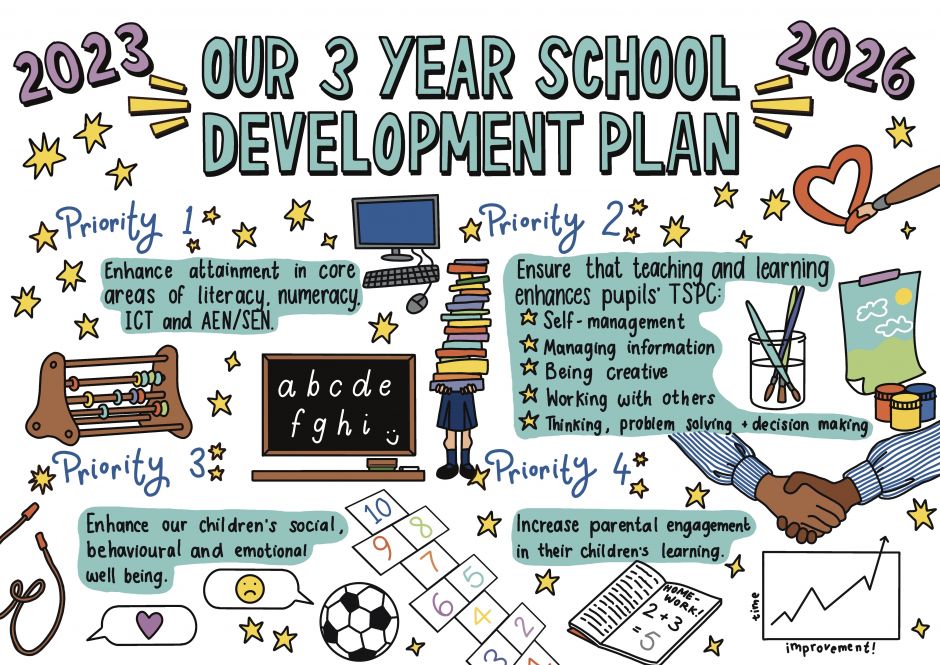 2023
OUR 3 YEAR SCHOOL
DEVELOPMENT PLAN
2026
Priority 1
Enhance attainment in core
areas of literacy, numeracy,
ICT and AEN/SEN.
a b c d e
f g h i
Priority 2
Ensure that teaching and learning
enhances pupils' TSPC:
Self-management
Managing information
Being creative
Working with others
Thinking, problem solving + decision making
Priority 3
Enhance our children's social,
behavioural and emotional
well being.
10
9 8
7
6 5
4
3 2
1
Priority 4
Increase parental engagement
in their children's learning.
HOME-
WORK!
2+3
=5
time
improvement!